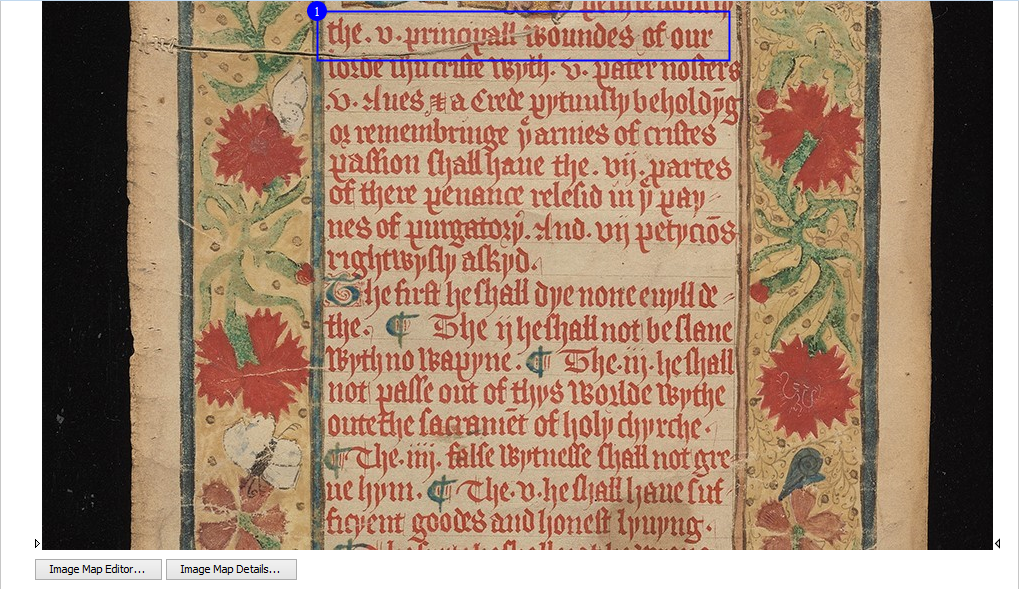 1
the . v . princypall woundes of our
lorde ihu criste wyth . v . pater nosters
. v . Aues & a Crede pytuusly beholdȳg
or remembringe yͤ armes of cristes
passion shall haue the . vij . partes
of there penance relesid in yͤ pay=
nes of purgatory . And . vij petyciōs
rightwysly askyd .
The first he shall dye none euyll de=
the . ¶ The ij he shall not be slane
wyth no wapyne . ¶ The . iij . he shall
not passe out of thys worlde wythe
oute the sacramēt of holy chyrche .
¶ The . iiij . false wytnesse shall not gre=
ue hym . ¶ The . v . he shall haue suf
ficyent goodes and honest lyuyng .
Image Map Editor...
Image Map Details...